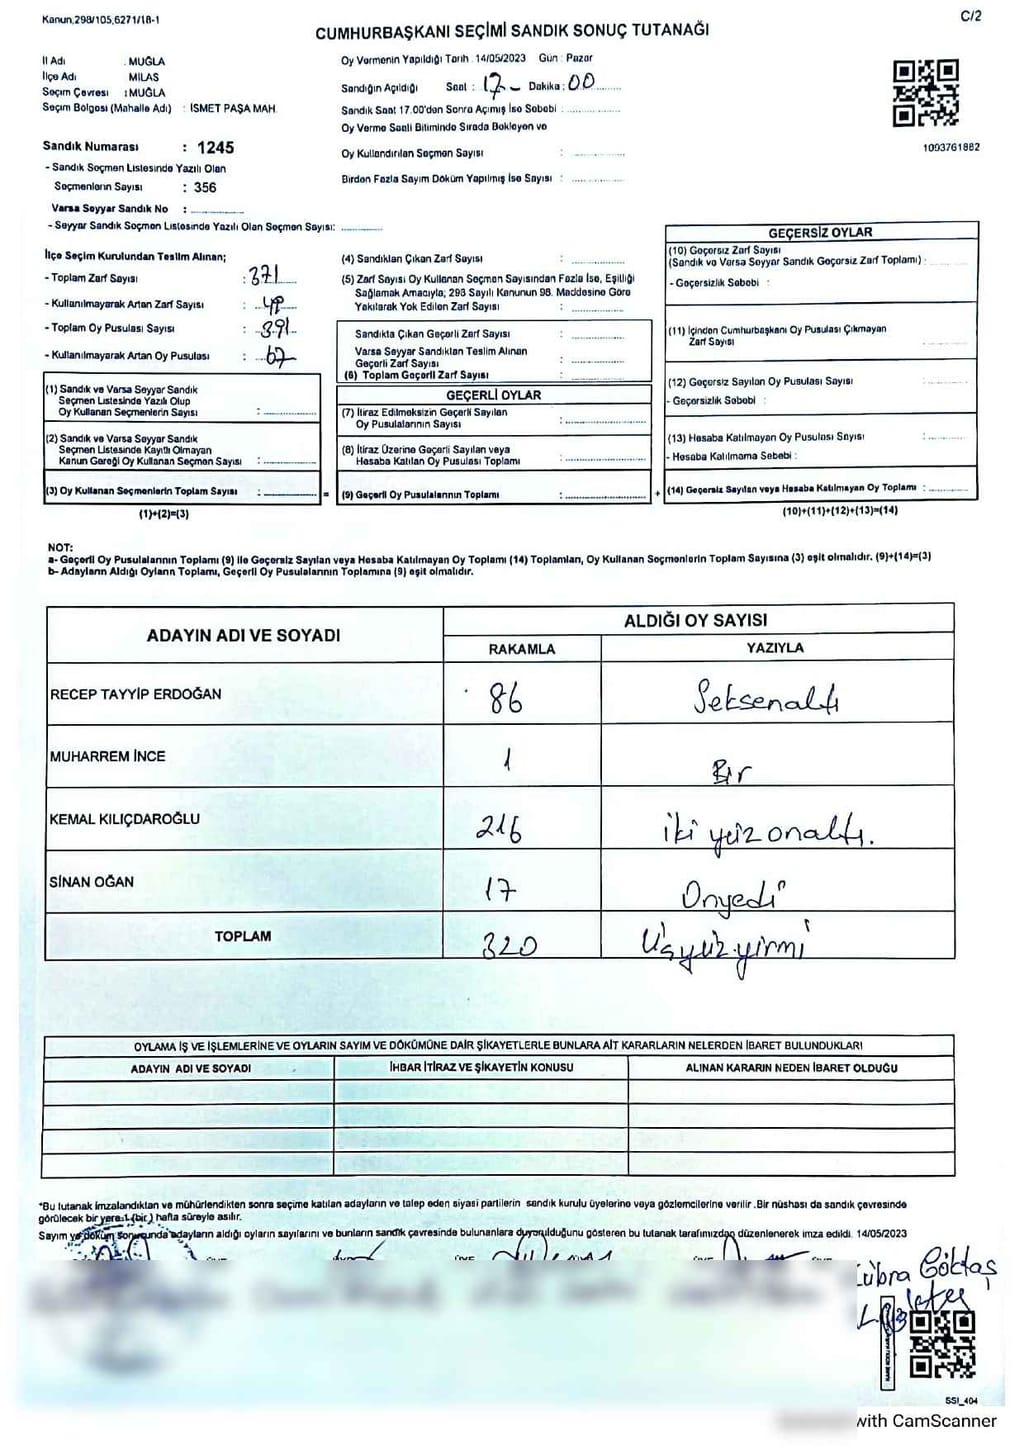 Kanun,298/105,6271/18-1
C/2
CUMHURBAŞKANI SEÇİMİ SANDIK SONUÇ TUTANAĞI
İl Adı : MUĞLA
İlçe Adı MİLAS
Seçim Çevresi : MUĞLA
Seçim Bölgesi (Mahalle Adı) : İSMET PAŞA MAH.
Sandık Numarası : 1245
- Sandık Seçmen Listesinde Yazılı Olan
Seçmenlerin Sayısı : 356
Varsa Seyyar Sandık No :
- Seyyar Sandık Seçmen Listesinde Yazılı Olan Seçmen Sayısı:
Oy Vermenin Yapıldığı Tarih : 14/05/2023 Gün : Pazar
Sandığın Açıldığı Saat : 17 - Dakika : 00
Sandık Saat 17.00'den Sonra Açımış İse Sebebi :
Oy Verme Saati Bitiminde Sırada Bekleyen ve
Oy Kullandırılan Seçmen Sayısı :
Birden Fazla Sayım Döküm Yapılmış İse Sayısı :
1093761882
İlçe Seçim Kurulundan Teslim Alınan;
- Toplam Zarf Sayısı : 371
- Kullanılmayarak Artan Zarf Sayısı :
- Toplam Oy Pusulası Sayısı : 391
- Kullanılmayarak Artan Oy Pusulası : 67
(1) Sandık ve Varsa Seyyar Sandık
Seçmen Listesinde Yazılı Olup
Oy Kullanan Seçmenlerin Sayısı :
(2) Sandık ve Varsa Seyyar Sandık
Seçmen Listesinde Kayıtlı Olmayan
Kanun Gereği Oy Kullanan Seçmen Sayısı :
(3) Oy Kullanan Seçmenlerin Toplam Sayısı : =
(1)+(2)=(3)
(4) Sandıktan Çıkan Zarf Sayısı :
(5) Zarf Sayısı Oy Kullanan Seçmen Sayısından Fazla İse, Eşitliği
Sağlamak Amacıyla; 298 Sayılı Kanunun 98. Maddesine Göre
Yakılarak Yok Edilen Zarf Sayısı :
Sandıkta Çıkan Geçerli Zarf Sayısı :
Varsa Seyyar Sandıktan Teslim Alınan
Geçerli Zarf Sayısı :
(6) Toplam Geçerli Zarf Sayısı :
GEÇERLİ OYLAR
(7) İtiraz Edilmeksizin Geçerli Sayılan
Oy Pusulalarının Sayısı :
(8) İtiraz Üzerine Geçerli Sayılan veya
Hesaba Katılan Oy Pusulası Toplamı :
(9) Geçerli Oy Pusulalarının Toplamı : +
GEÇERSİZ OYLAR
(10) Geçersiz Zarf Sayısı
(Sandık ve Varsa Seyyar Sandık Geçersiz Zarf Toplamı) :
- Geçersizlik Sebebi :
(11) İçinden Cumhurbaşkanı Oy Pusulası Çıkmayan
Zarf Sayısı :
(12) Geçersiz Sayılan Oy Pusulası Sayısı :
- Geçersizlik Sebebi :
(13) Hesaba Katılmayan Oy Pusulası Sayısı :
- Hesaba Katılmama Sebebi :
(14) Geçersiz Sayılan veya Hesaba Katılmayan Oy Toplamı :
(10)+(11)+(12)+(13)=(14)
NOT:
a- Geçerli Oy Pusulalarının Toplamı (9) ile Geçersiz Sayılan veya Hesaba Katılmayan Oy Toplamı (14) Toplamları, Oy Kullanan Seçmenlerin Toplam Sayısına (3) eşit olmalıdır. (9)+(14)=(3)
b- Adayların Aldığı Oyların Toplamı, Geçerli Oy Pusulalarının Toplamına (9) eşit olmalıdır.
ADAYIN ADI VE SOYADI
ALDIĞI OY SAYISI
RAKAMLA YAZIYLA
RECEP TAYYİP ERDOĞAN 86 Seksenaltı
MUHARREM İNCE 1 Bir
KEMAL KILIÇDAROĞLU 216 iki yüz onaltı.
SİNAN OĞAN 17 Onyedi
TOPLAM 320 Üçyüz yirmi
OYLAMA İŞ VE İŞLEMLERİNE VE OYLARIN SAYIM VE DÖKÜMÜNE DAİR ŞİKAYETLERLE BUNLARA AİT KARARLARIN NELERDEN İBARET BULUNDUKLARI
ADAYIN ADI VE SOYADI İHBAR İTİRAZ VE ŞİKAYETİN KONUSU ALINAN KARARIN NEDEN İBARET OLDUĞU
*Bu tutanak imzalandıktan ve mühürlendikten sonra seçime katılan adayların ve talep eden siyasi partilerin sandık kurulu üyelerine veya gözlemcilerine verilir. Bir nüshası da sandık çevresinde
görülecek bir yere 1 (bir) hafta süreyle asılır.
Sayım ve döküm sonucunda adayların aldığı oyların sayılarını ve bunların sandık çevresinde bulunanlara duyurulduğunu gösteren bu tutanak tarafımızdan düzenlenerek imza edildi. 14/05/2023
Kübra Göktaş
SSI_404
with CamScanner